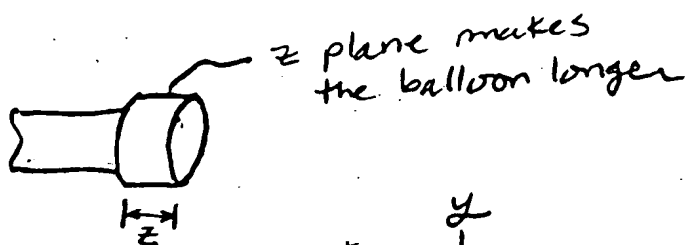 z plane makes
the balloon longer
z
y